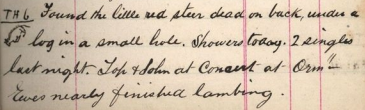 TH 6 Found the little red steer dead on back, under a
log in a small hole. Showers today. 2 singles
last night. Top & John at Concert at Orm"
Ewes nearly finished lambing.